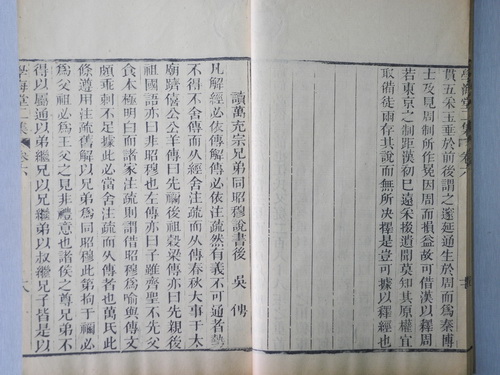 學海堂二集 卷六
貫五采玉垂於前後謂之邃延通生於周而為秦博
士及見周制所作冕因周而損益故可借漢以釋周
若東京之制距漢初已遠采掇遺聞莫知其原權宜
取備徒爾存其說而無所決擇是豈可據以釋經也
讀萬充宗兄弟同昭穆說書後 吳傳
凡解經必依傳解傳必依注疏然有義不可通者勢
不得不舍傳而从經舍注疏而从傳春秋大事于太
廟躋僖公公羊傳曰先禰後祖穀梁傳亦曰先親後
祖國語亦曰非昭穆也左傳亦曰子雖齊聖不先父
食本極明白而諸家注疏則謂借昭穆為喻與傳文
頗乖剌不足據此必當舍注疏而从傳者也萬氏此
條遵用注疏舊解以兄弟為同昭穆此第拘于禰必
為父祖必為王父之見非禮意也諸侯之尊兄弟不
得以屬通以弟繼兄以兄繼弟以叔繼兄子皆是以
學海堂二集 卷六 八